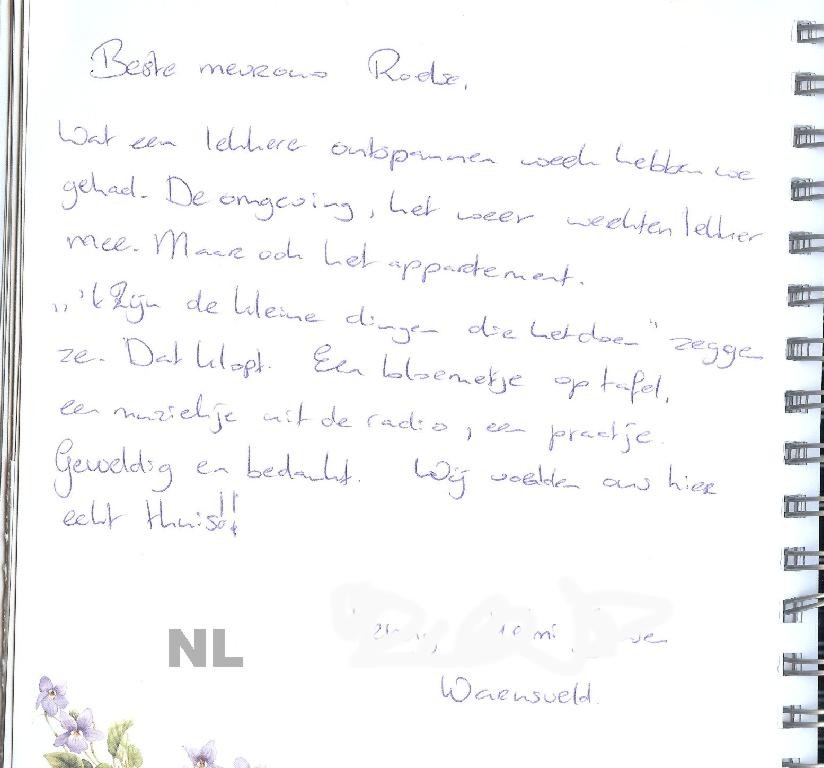 Beste mevrouw Rode,
Wat een lekkere ontspannen week hebben we
gehad. De omgeving, het weer werkten lekker
mee. Maar ook het appartement.
„'t Zijn de kleine dingen die het doen" zegge
ze. Dat klopt. Een bloemetje op tafel,
een muziekje uit de radio, een praatje.
Geweldig en bedankt. Wij voelden ons hier
echt thuis!!
NL